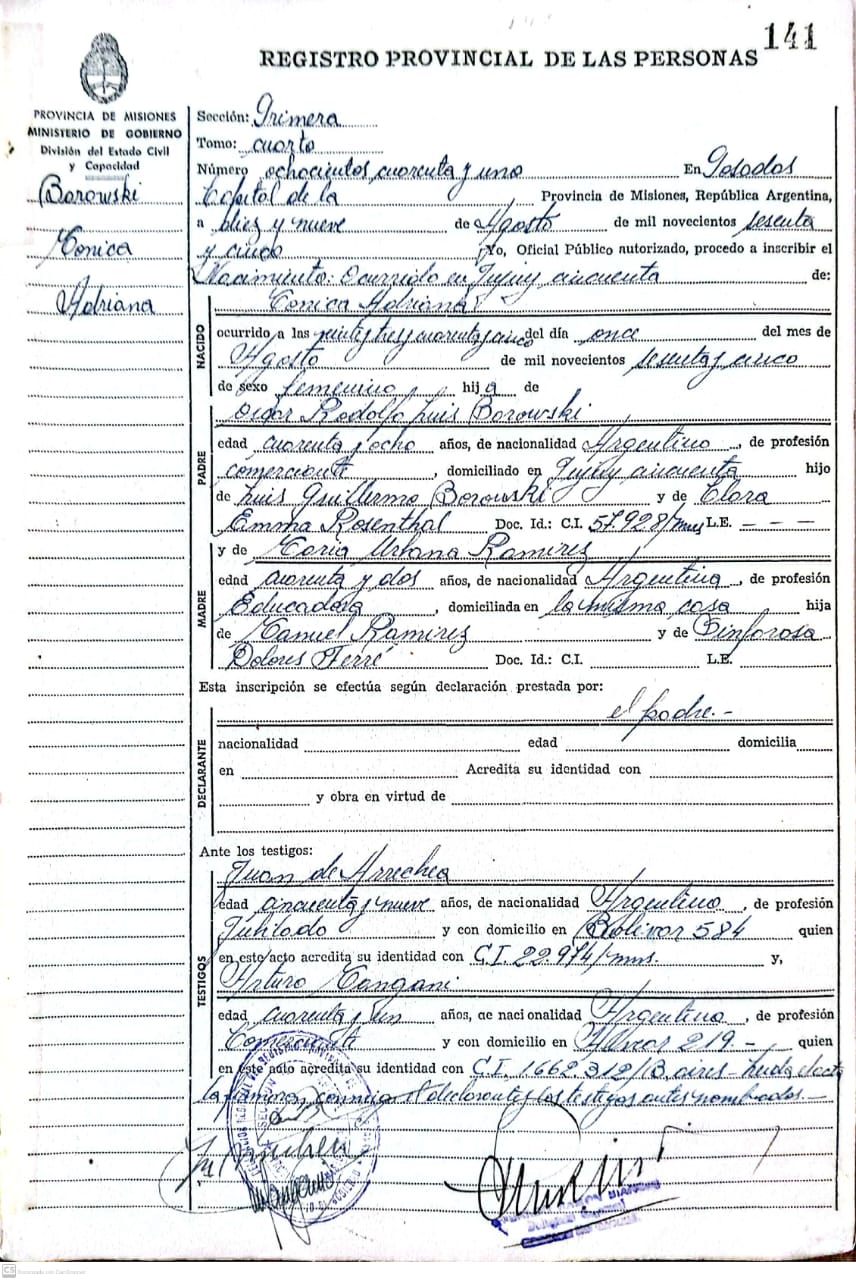 141
REGISTRO PROVINCIAL DE LAS PERSONAS
PROVINCIA DE MISIONES
MINISTERIO DE GOBIERNO
División del Estado Civil
y Capacidad
Borowski
Monica
Adriana
Sección: Primera
Tomo: cuarto
Número ochocientos cuarenta y uno En Posadas
Capital de la Provincia de Misiones, República Argentina,
a diez y nueve de Agosto de mil novecientos sesenta
y cinco Yo, Oficial Público autorizado, procedo a inscribir el
Nacimiento: Ocurrido en Jujuy cincuenta de:
NACIDO
Monica Adriana
ocurrido a las veintitres cuarenta y cinco del día once del mes de
Agosto de mil novecientos sesenta y cinco
de sexo femenino hija de
PADRE
Oscar Rodolfo Luis Borowski
edad cuarenta y ocho años, de nacionalidad Argentino, de profesión
comerciante, domiciliado en Jujuy cincuenta hijo
de Luis Guillermo Borowski y de Clara
Emma Rosenthal Doc. Id.: C.I. 57.928/mns L.E. - - -
MADRE
y de Maria Urbana Ramirez
edad cuarenta y dos años, de nacionalidad Argentina, de profesión
Educadora, domiciliada en la misma casa hija
de Manuel Ramirez y de Sinforosa
Dolores Ferré Doc. Id.: C.I. L.E.
Esta inscripción se efectúa según declaración prestada por:
el padre.-
DECLARANTE
nacionalidad edad domicilia
en Acredita su identidad con
y obra en virtud de
Ante los testigos:
TESTIGOS
Juan de Arrechea
edad cincuenta y nueve años, de nacionalidad Argentino, de profesión
Jubilado y con domicilio en Bolivar 584 quien
en este acto acredita su identidad con C.I. 22.974/mns. y,
Arturo Mangani
edad cuarenta y un años, de nacionalidad Argentino, de profesión
Comerciante y con domicilio en 219.- quien
en este acto acredita su identidad con C.I. 1662.312/B. aires - Leida el acta
la firman conmigo el declarante y los testigos antes nombrados.-
CS Escaneado con CamScanner